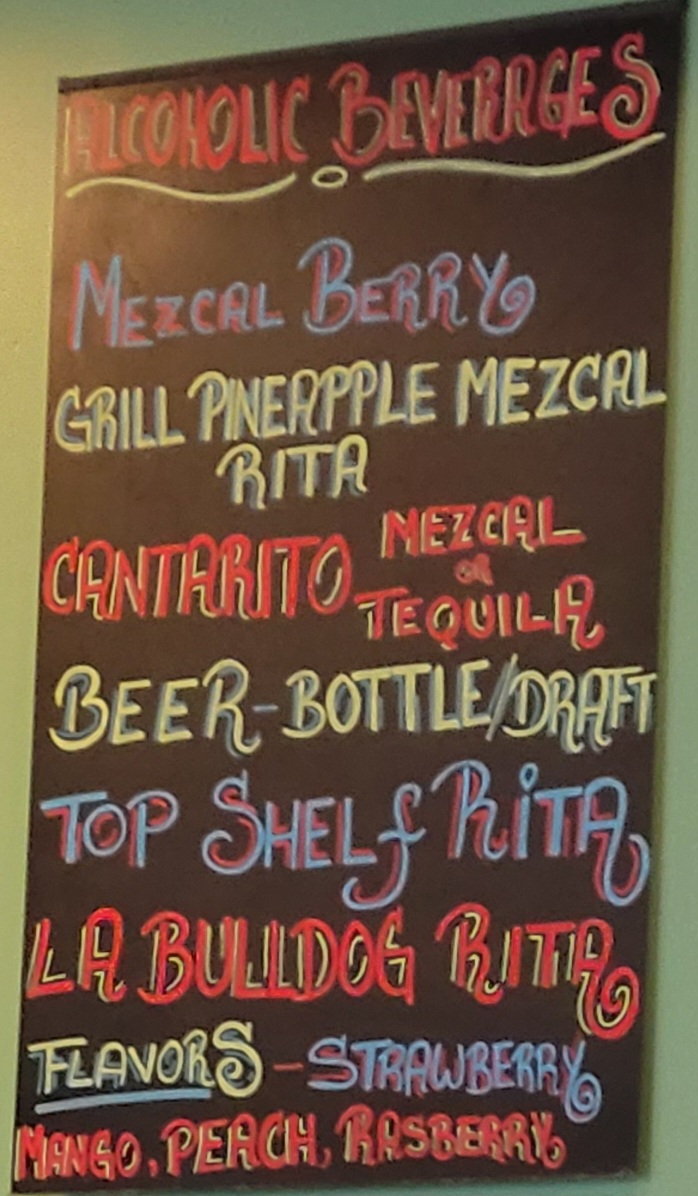 ALCOHOLIC BEVERAGES
MEZCAL BERRY
GRILL PINEAPPLE MEZCAL
RITA
CANTARITO MEZCAL
OR
TEQUILA
BEER-BOTTLE/DRAFT
TOP SHELF RITA
LA BULLDOG RITA
FLAVORS - STRAWBERRY
MANGO, PEACH, RASBERRY